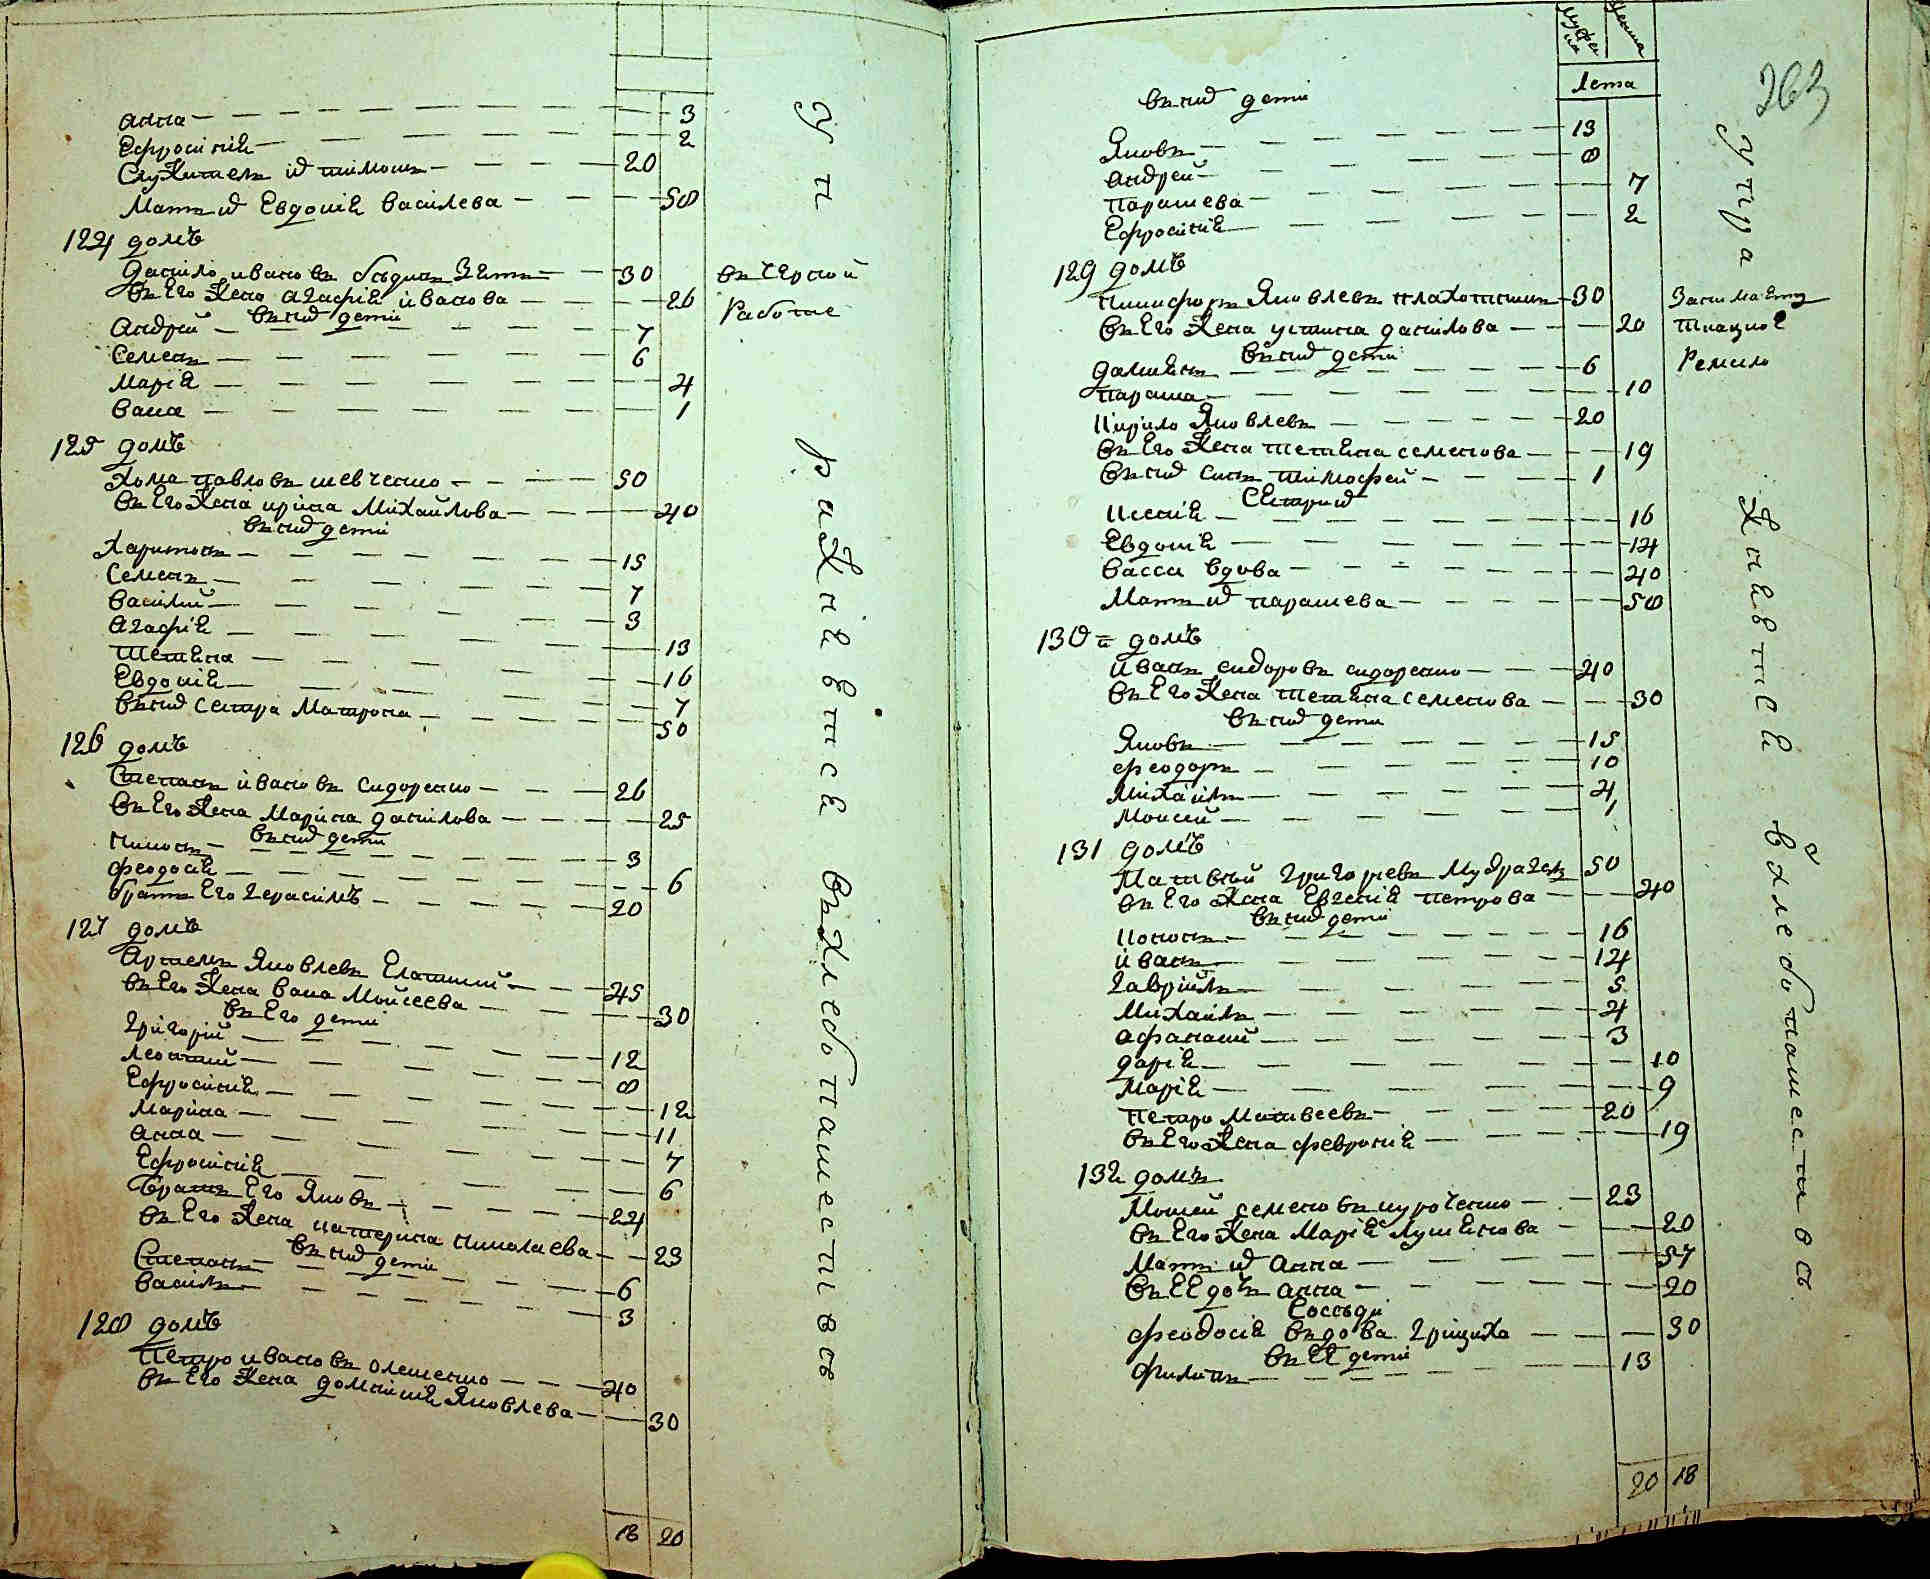 анна 3
Ефросинія 2
Служитель ихъ тимошъ 20
Мать ихъ Евдокія василева 58
124 домъ
данило ивановъ Зять 30
въ его жена агафія иванова 26
въ нихъ дети
андрей 7
Семенъ 6
Марія 4
васа 1
въ черной
Работе
125 домъ
Хома павловъ шевченко 50
въ его жена ирина Михайлова 40
въ нихъ дети
Харитонъ 15
Семенъ 7
василий 3
агафія 13
тетяна 16
Евдокія 7
въ нихъ сестра Матрона 50
126 домъ
Степанъ ивановъ Сидоренко 26
въ его жена Марина данилова 25
въ нихъ дети
никонъ 3
феодосія 6
братъ его герасимъ 20
127 домъ
Артемъ Яковлевъ 45
въ его жена васа Мойсеева 30
въ его дети
григорій 12
леонтий 8
Ефросинія 12
Марина 11
анна 7
Ефросинія 6
братъ его Яковъ 24
въ его жена катерина николаева 23
въ нихъ дети
Степанъ 6
василь 3
128 домъ
петро ивановъ олешенко 40
въ его жена домникія Яковлева 30
18 20
упражняются въ хлебопашествось
263
мужеска женска
лета
въ нихъ дети
Яковъ 13
андрей 8
парашева 7
Ефросинія 2
129 домъ
никифоръ Яковлевъ плахотникъ 30
въ его жена устина данилова 20
въ нихъ дети
дамиянъ 6
параша 10
кирило Яковлевъ 20
въ его жена тетяна семенова 19
въ нихъ синъ тимофей 1
Сестри ихъ
ксенія 16
Евдокія 14
васса вдова 40
Мать ихъ парашева 58
Занимается
ткацкое
Ремесло
130й домъ
иванъ сидоровъ сидоренко 40
въ его жена тетяна семенова 30
въ нихъ дети
Яковъ 15
феодоръ 10
Михаилъ 4
Моисей 1
131 домъ
Матвѣй григорьевъ 50
въ его жена Евгенія петрова 40
въ нихъ дети
кононъ 16
иванъ 14
гаврийлъ 5
Михаилъ 4
афанасий 3
дарія 10
Марія 9
петро Матвеевъ 20
въ его жена февронія 19
132 домъ
Мойсей семеновъ куроченко 23
въ его жена Марія лукянова 20
Мать ихъ анна 57
въ ее дочь анна 20
Соседи
феодосія вдова грициха 30
въ ее дети
филипъ 13
20 18
упражняются в хлебопашествось